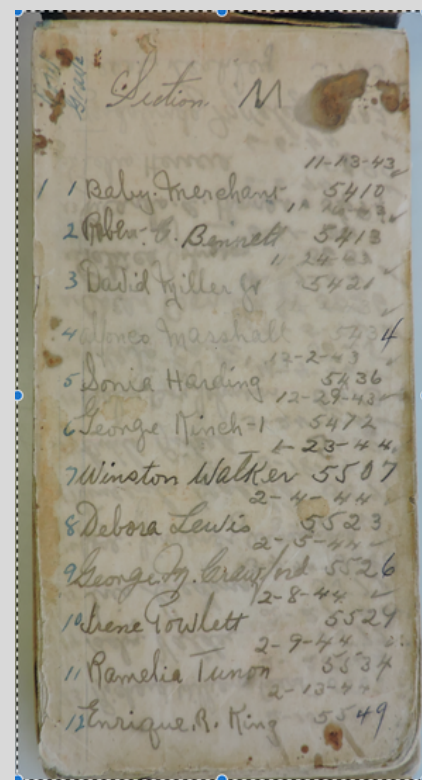 Row
Grave
Section M
11-13-43
1 1 Baby Merchant 5410
2 Robert E. Bennett 5413
3 David Miller Jr 5421
4 Marshall 5434
12-2-43
5 Sonia Harding 5436
12-29-43
6 George Kinch-1 5472
1-23-44
7 Winston Walker 5507
2-4-44
8 Debora Lewis 5523
2-5-44
9 George M. Crawford 5526
2-8-44
10 Irene Powlett 5529
2-9-44
11 Ramelia Tunon 5534
2-13-44
12 Enrique R. King 5549